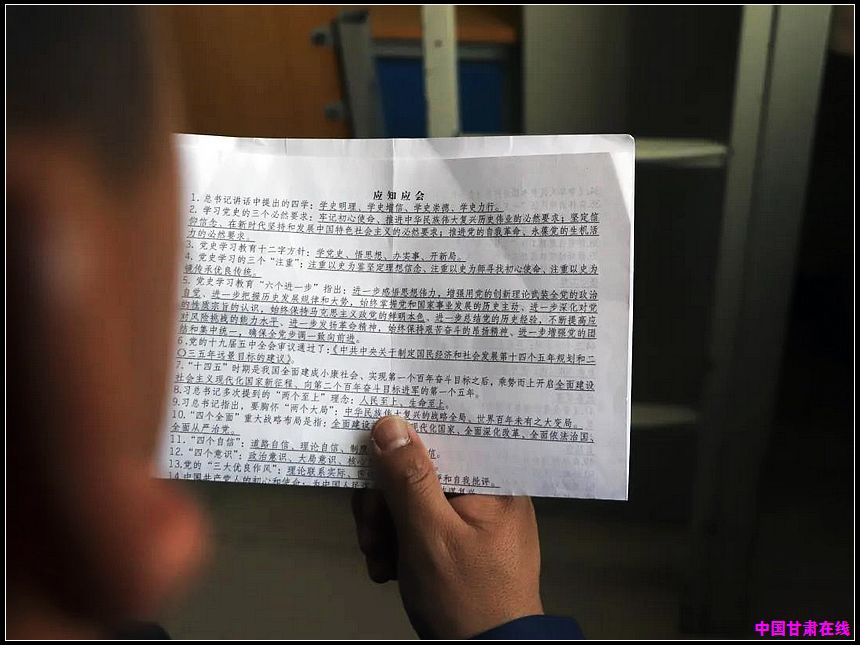 应知应会
1. 总书记讲话中提出的四学：学史明理、学史增信、学史崇德、学史力行。
2. 学习党史的三个必然要求：牢记初心使命、推进中华民族伟大复兴历史伟业的必然要求；坚定信
仰信念、在新时代坚持和发展中国特色社会主义的必然要求；推进党的自我革命、永葆党的生机活
力的必然要求。
3. 党史学习教育十二字方针：学党史、悟思想、办实事、开新局。
4. 党史学习的三个“注重”：注重以史为鉴坚定理想信念、注重以史为师寻找初心使命、注重以史为
镜传承优良传统。
5. 党史学习教育“六个进一步”指出：进一步感悟思想伟力，增强用党的创新理论武装全党的政治
自觉、进一步把握历史发展规律和大势，始终掌握党和国家事业发展的历史主动、进一步深化对党
的性质宗旨的认识，始终保持马克思主义政党的鲜明本色、进一步总结党的历史经验，不断提高应
对风险挑战的能力水平、进一步发扬革命精神，始终保持艰苦奋斗的昂扬精神、进一步增强党的团
结和集中统一，确保全党步调一致向前进。
6. 党的十九届五中全会审议通过了：《中共中央关于制定国民经济和社会发展第十四个五年规划和二
〇三五年远景目标的建议》。
7. “十四五”时期是我国全面建成小康社会、实现第一个百年奋斗目标之后，乘势而上开启全面建设
社会主义现代化国家新征程、向第二个百年奋斗目标进军的第一个五年。
8. 习总书记多次提到的“两个至上”理念：人民至上、生命至上。
9. 习总书记指出，要胸怀“两个大局”：中华民族伟大复兴的战略全局、世界百年未有之大变局。
10. “四个全面”重大战略布局是指：全面建设 现代化国家、全面深化改革、全面依法治国、
全面从严治党。
11. “四个自信”：道路自信、理论自信、制度
12. “四个意识”：政治意识、大局意识、核心
13. 党的“三大优良作风”：理论联系实际、 和自我批评。
14. 中国共产党人的初心和使命：为中国人民
中国甘肃在线